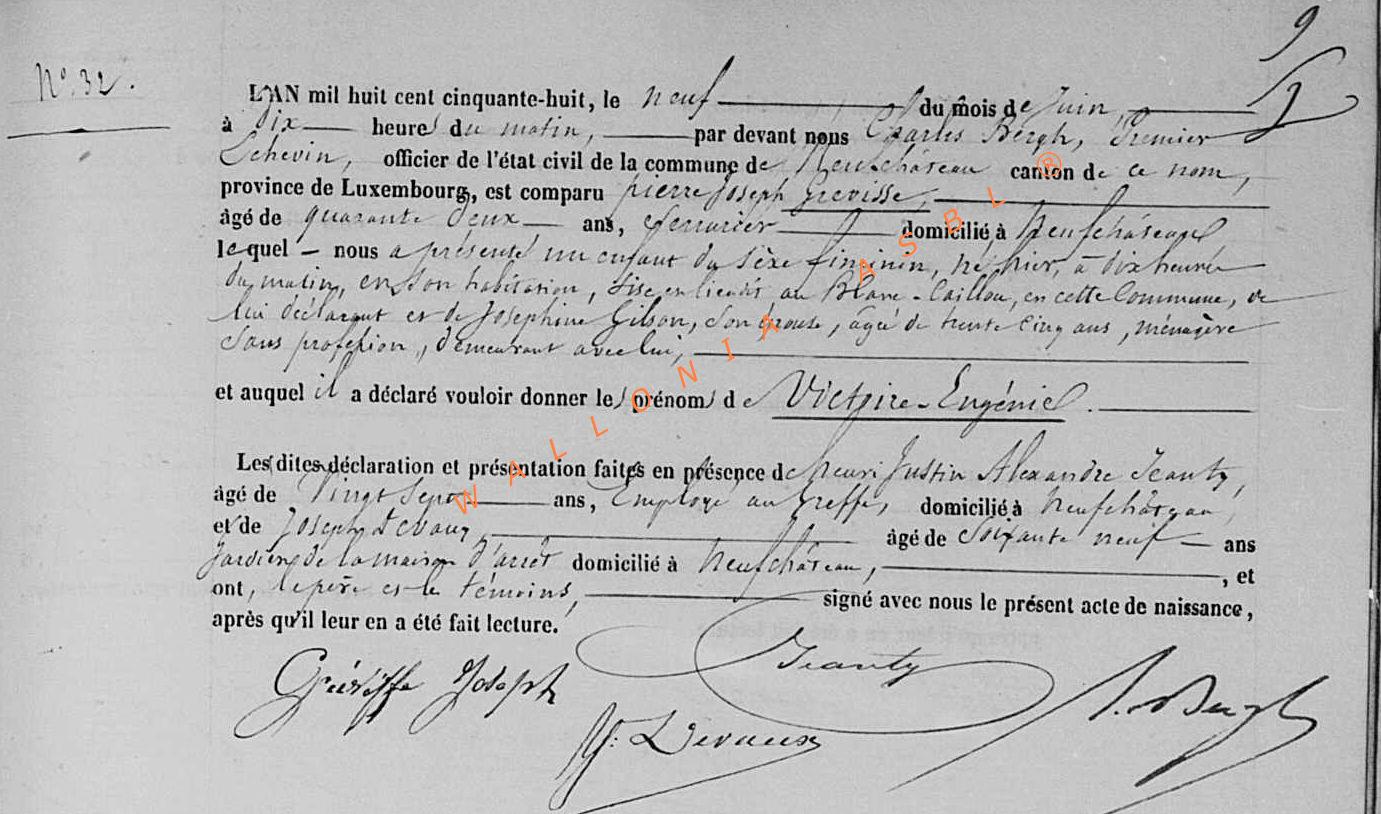 9
N° 32.
L'AN mil huit cent cinquante-huit, le neuf du mois de Juin,
à Dix heures du matin, par devant nous Charles Bergh, Premier
Echevin, officier de l'état civil de la commune de Neufchâteau canton de ce nom,
province de Luxembourg, est comparu pierre Joseph Grevisse,
âgé de quarante deux ans, serrurier domicilié à Neufchâteau
lequel nous a présenté un enfant du sèxe féminin, né hier, à dix heures
du matin, en son habitation, sise en lieudit au Blanc-Caillou, en cette Commune, de
lui déclarant et de Joséphine Gilson, son épouse, âgée de trente cinq ans, ménagère
sans profession, demeurant avec lui,
et auquel il a déclaré vouloir donner les prénoms de Victoire-Eugénie.
Les dites déclaration et présentation faites en présence de henri Justin Alexandre Jeanty,
âgé de Vingt sept ans, Employé au greffe, domicilié à neufchâteau,
et de Joseph Devaux, âgé de soixante neuf ans
gardien de la maison d'arrêt domicilié à Neufchâteau, , et
ont, le père et le témoins, signé avec nous le présent acte de naissance,
après qu'il leur en a été fait lecture.
Jeanty
Grévisse Joseph
Devaux
Bergh
WALLONIA ASBL ®